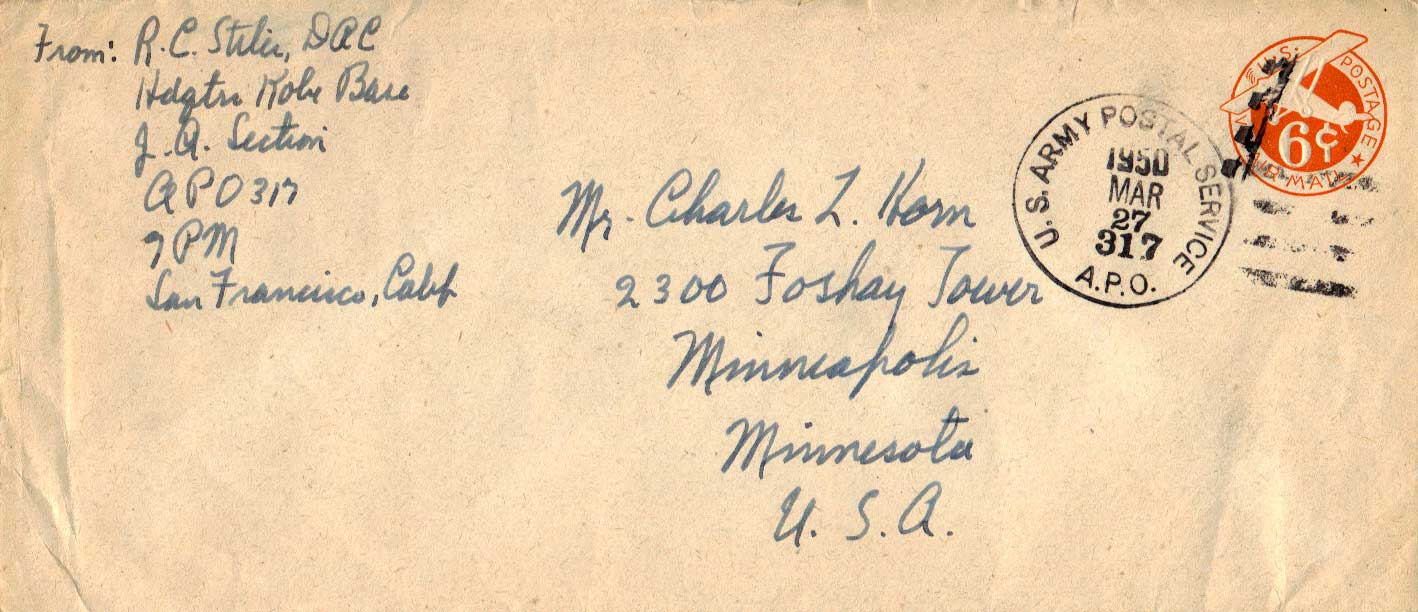 From: R. C. Stiler, DAC
Hdqtrs Kobe Base
J. A. Section
APO 317
% PM
San Francisco, Calif
Mr. Charles L. Horn
2300 Foshay Tower
Minneapolis
Minnesota
U. S. A.
U.S. ARMY POSTAL SERVICE
1950
MAR
27
317
A.P.O.
U.S. POSTAGE
6¢
AIR MAIL